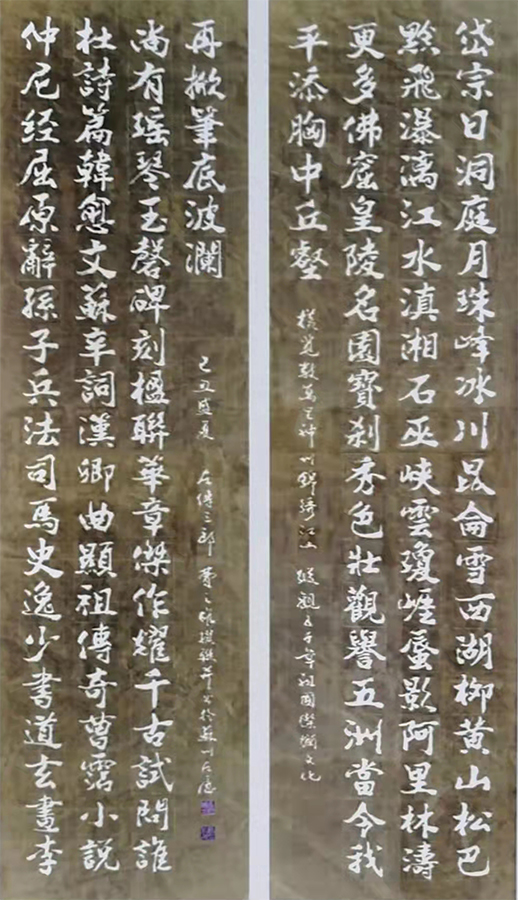 岱宗日洞庭月珠峰冰川昆侖雪西湖柳黄山松巴
黔飛瀑漓江水滇湘石巫峽雲瓊崖蜃影阿里林濤
更多佛窟皇陵名園寶刹秀色壯觀譽五洲當今我
平添胸中丘壑
橫覽數萬里神州錦綉江山 縱觀五千年祖國燦爛文化
仲尼经屈原辭孫子兵法司馬史逸少書道玄畫李
杜詩篇韓愈文蘇辛詞漢卿曲顯祖傳奇曹霑小説
尚有瑶琴玉磬碑刻楹聯華章傑作耀千古試問誰
再掀筆底波瀾
己丑盛夏 費之雄撰聯并書於蘇州